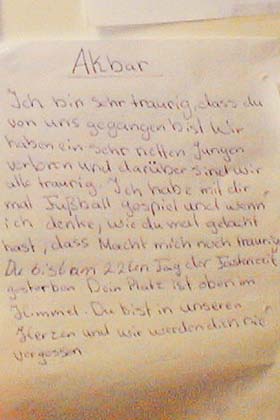 Akbar
Ich bin sehr traurig, dass du
von uns gegangen bist. Wir
haben ein sehr netten Jungen
verloren und darüber sind wir
alle traurig. Ich habe mit dir
mal Fußball gespielt und wenn
ich denke, wie du mal gelacht
hast, dass Macht mich noch trauriger
Du bist am 22ten Tag der Fastenzeit
gestorben. Dein Platz ist oben im
Himmel. Du bist in unseren
Herzen und wir werden dich nie
vergessen